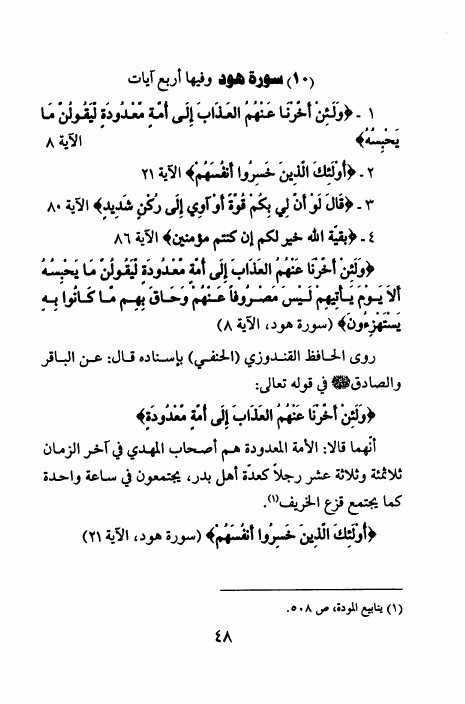 (١٠) سورة هود وفيها أربع آيات
١ - ﴿وَلَئِنْ أَخَّرْنَا عَنْهُمُ العَذَابَ إِلَى أُمَّةٍ مَّعْدُودَةٍ لَّيَقُولُنَّ مَا
يَحْبِسُهُ﴾ الآية ٨
٢ - ﴿أُوْلَئِكَ الَّذِينَ خَسِرُوا أَنفُسَهُمْ﴾ الآية ٢١
٣ - ﴿قَالَ لَوْ أَنَّ لِي بِكُمْ قُوَّةً أَوْ آوِي إِلَى رُكْنٍ شَدِيدٍ﴾ الآية ٨٠
٤ - ﴿بقيّة الله خير لكم إن كنتم مؤمنين﴾ الآية ٨٦
﴿وَلَئِنْ أَخَّرْنَا عَنْهُمُ العَذَابَ إِلَى أُمَّةٍ مَّعْدُودَةٍ لَّيَقُولُنَّ مَا يَحْبِسُهُ
أَلاَ يَوْمَ يَأْتِيهِمْ لَيْسَ مَصْرُوفاً عَنْهُمْ وَحَاقَ بِهِم مَّا كَانُوا بِهِ
يَسْتَهْزِءُونَ﴾ (سورة هود، الآية ٨)
روى الحافظ القندوزي (الحنفي) بإسناده قال: عن الباقر
والصادق في قوله تعالى:
﴿وَلَئِنْ أَخَّرْنَا عَنْهُمُ العَذَابَ إِلَى أُمَّةٍ مَّعْدُودَةٍ﴾
أنّهما قالا: الأمة المعدودة هم أصحاب المهدي في آخر الزمان
ثلاثمئة وثلاثة عشر رجلاً كعدّة أهل بدر، يجتمعون في ساعة واحدة
كما يجتمع قزع الخريف(١).
﴿أُوْلَئِكَ الَّذِينَ خَسِرُوا أَنفُسَهُمْ﴾ (سورة هود، الآية ٢١)
(١) ينابيع المودة، ص ٥٠٨.
٤٨